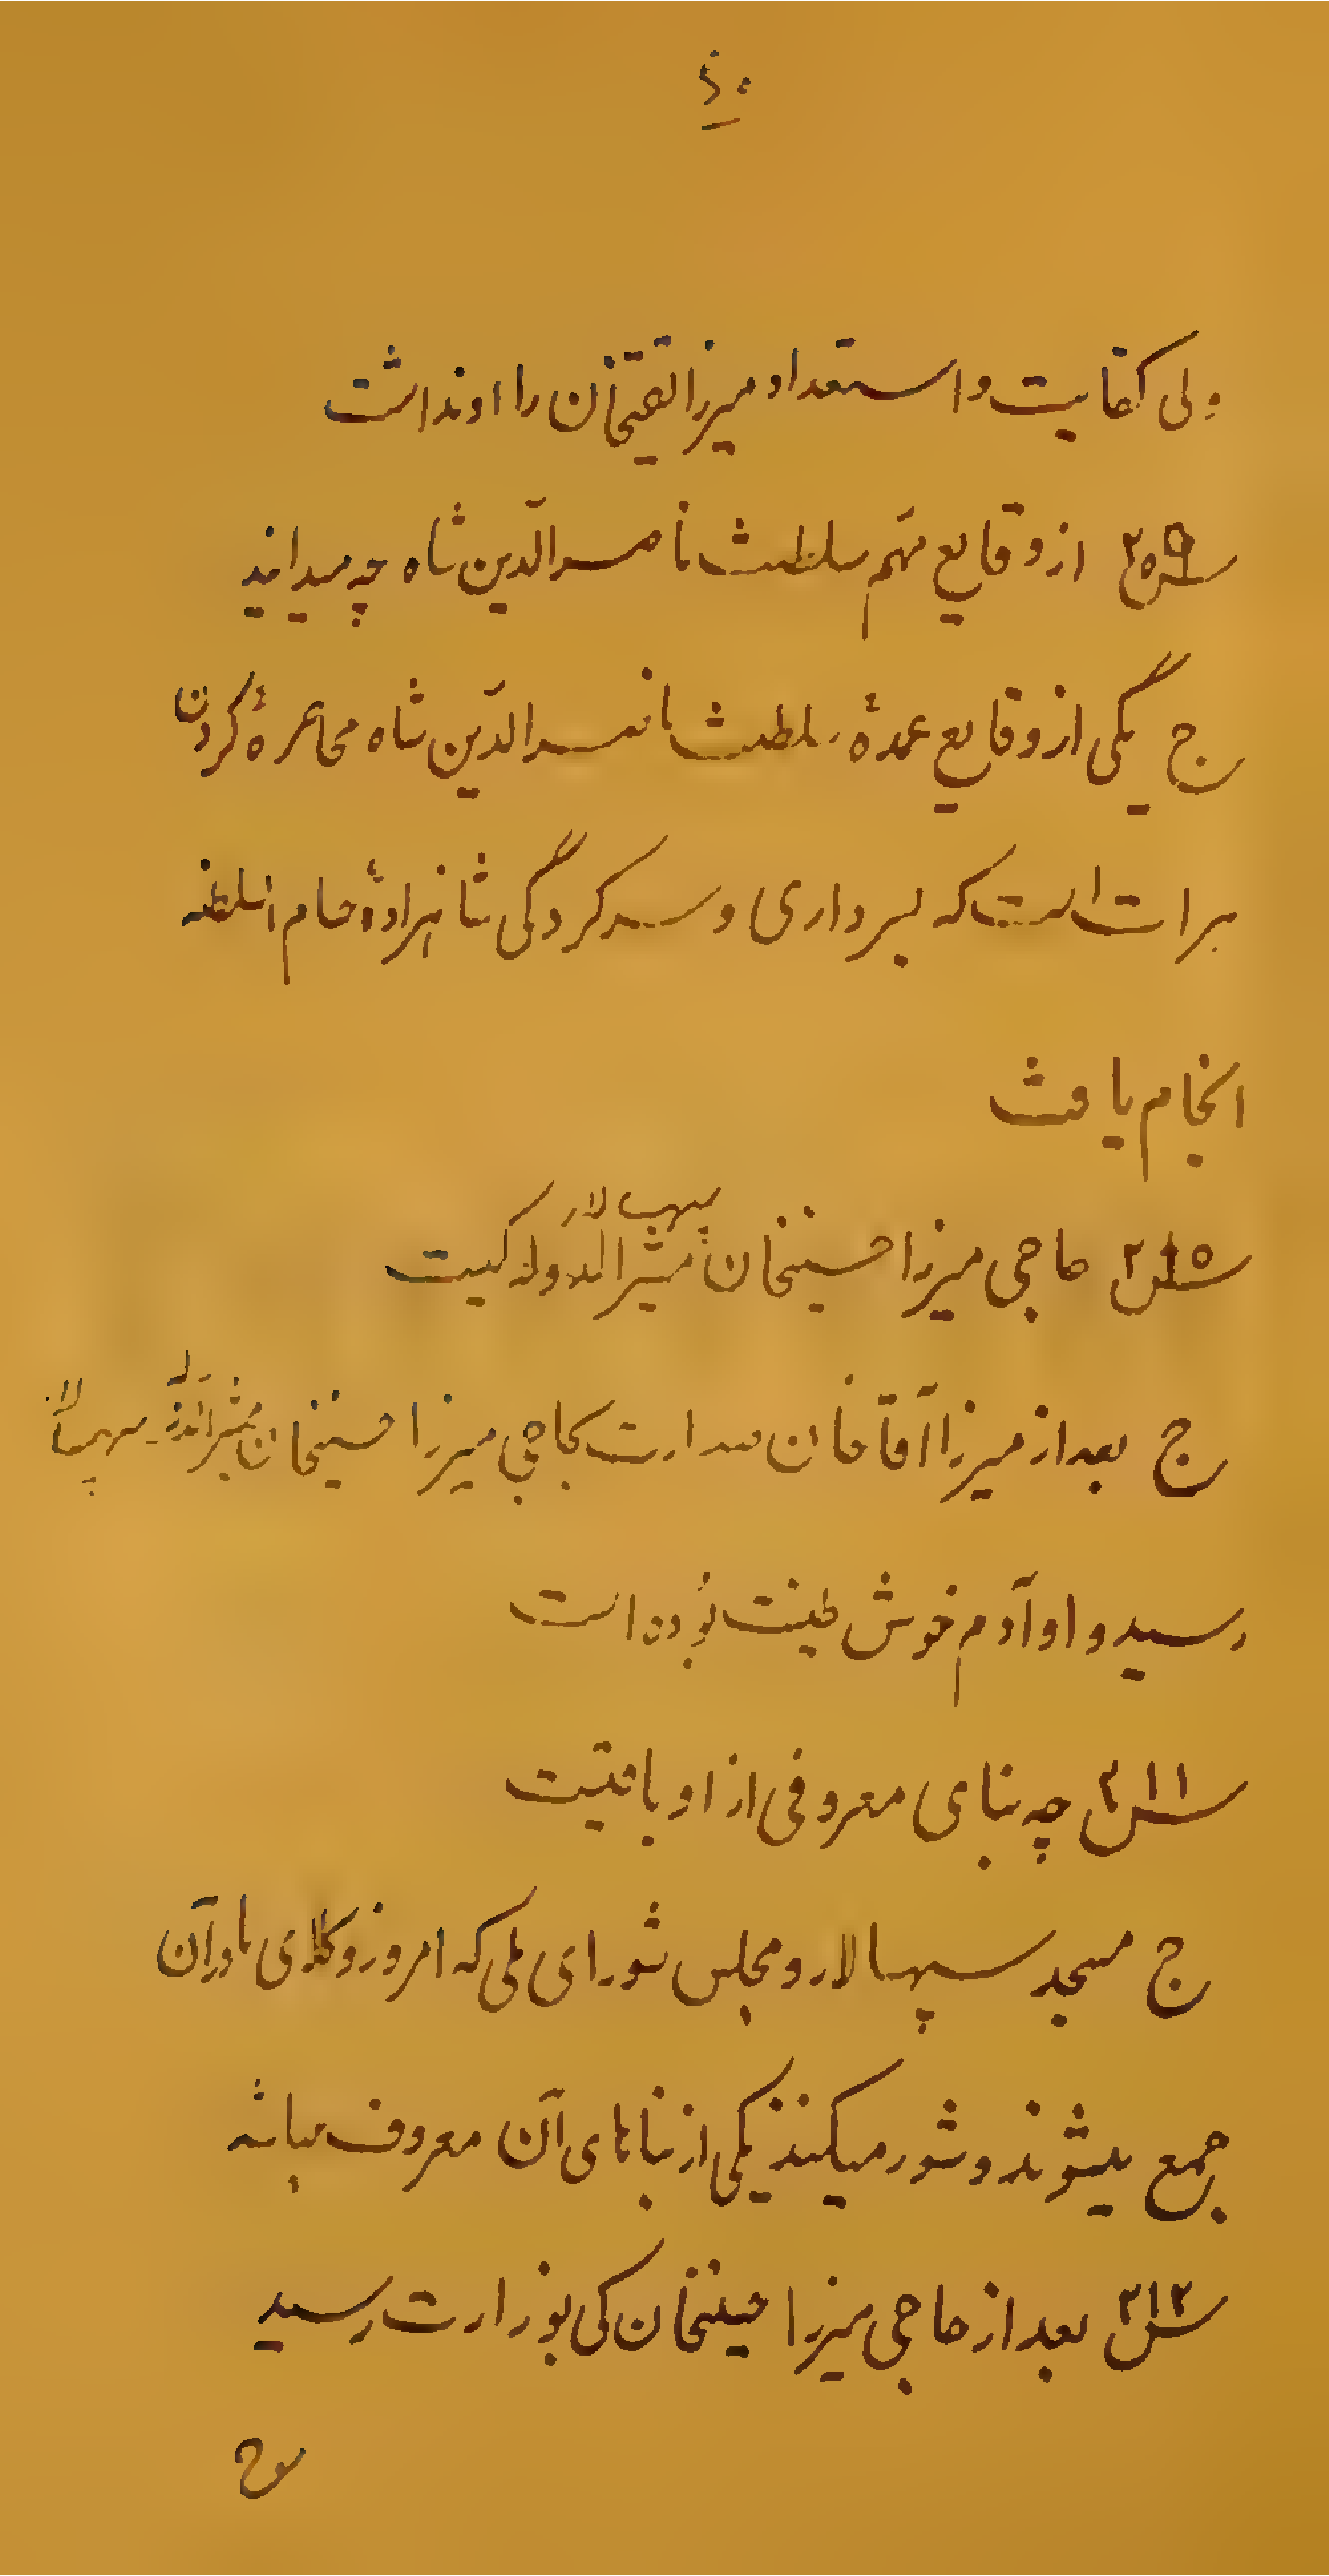 ۴۰
ولی کفایت و استعداد میرزا تقیخان را او نداشت
س ۲۰۹ از وقایع مهم سلطنت ناصرالدّین شاه چه میدانید
ج یکی از وقایع عمدهٔ سلطنت ناصرالدّین شاه محاصرهٔ کردن
هرات است که بسرداری و سرکردگی شاهزادهٔ حسام السلطنه
انجام یافت
س ۲۱۰ حاجی میرزا حسینخان مشیرالدوله سپهسالار کیست
ج بعد از میرزا آقا خان صدارت بحاجی میرزا حسینخان مشیرالدوله سپهسالار
رسید و او آدم خوش طینت بوده است
س ۲۱۱ چه بنای معروفی از او باقیست
ج مسجد سپهسالار و مجلس شورای ملی که امروز وکلای ما در آن
جمع میشوند و شور میکنند یکی از بناهای آن معروف میباشد
س ۲۱۲ بعد از حاجی میرزا حسینخان کی بوزارت رسید